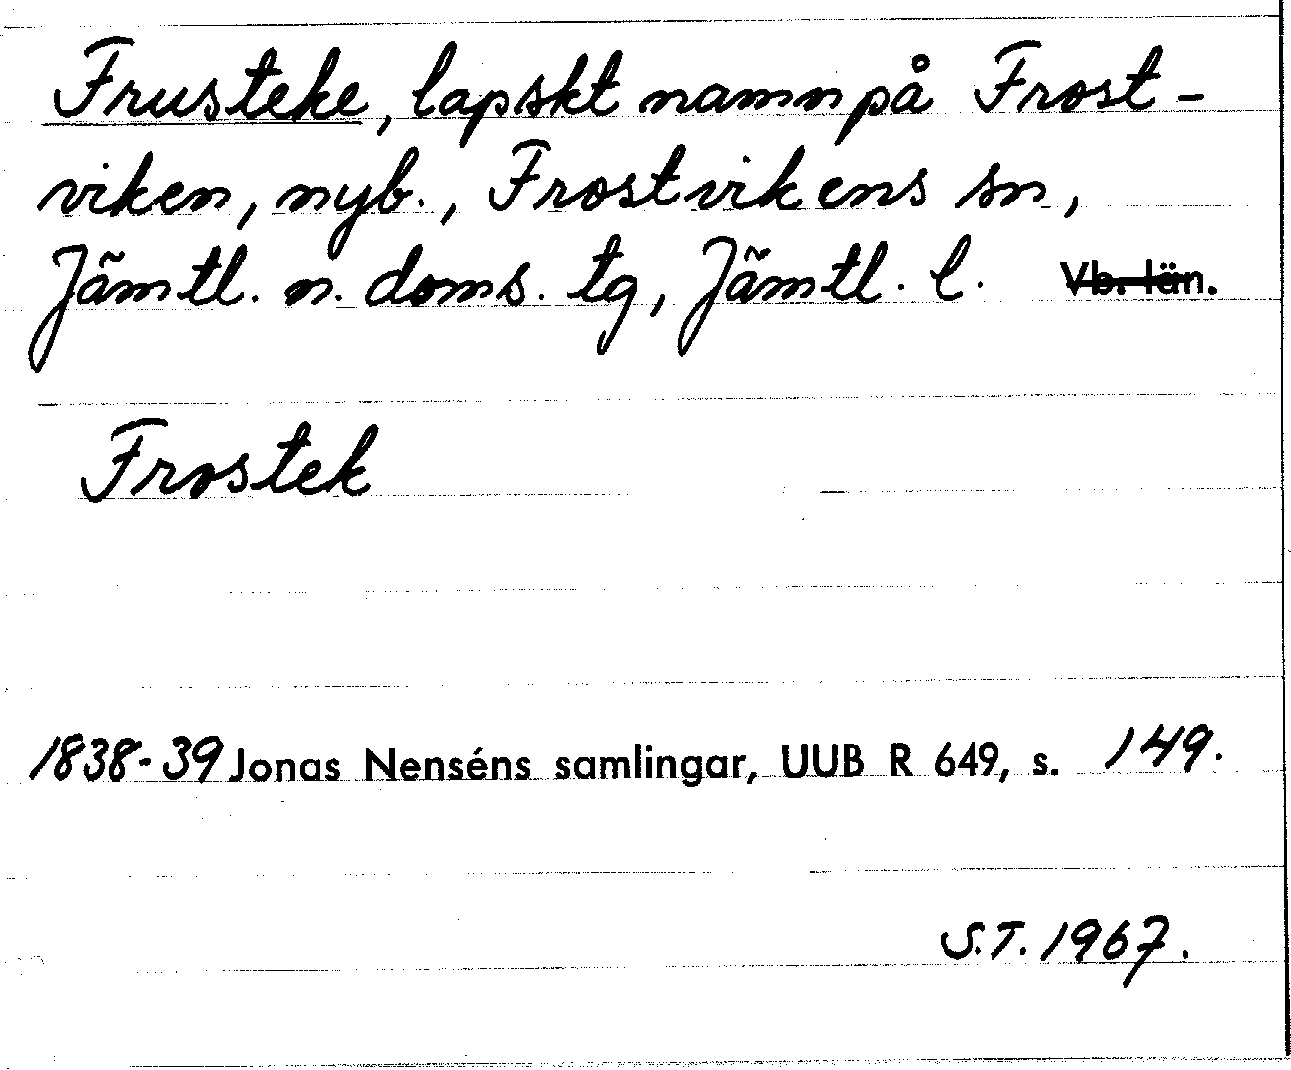 Frusteke, lapskt namn på Frost-
viken, nyb., Frostvikens sn,
Jämtl. n. doms. tg, Jämtl. l. Vb. län.
Frostek
1838-39 Jonas Nenséns samlingar, UUB R 649, s. 149.
S.T. 1967.